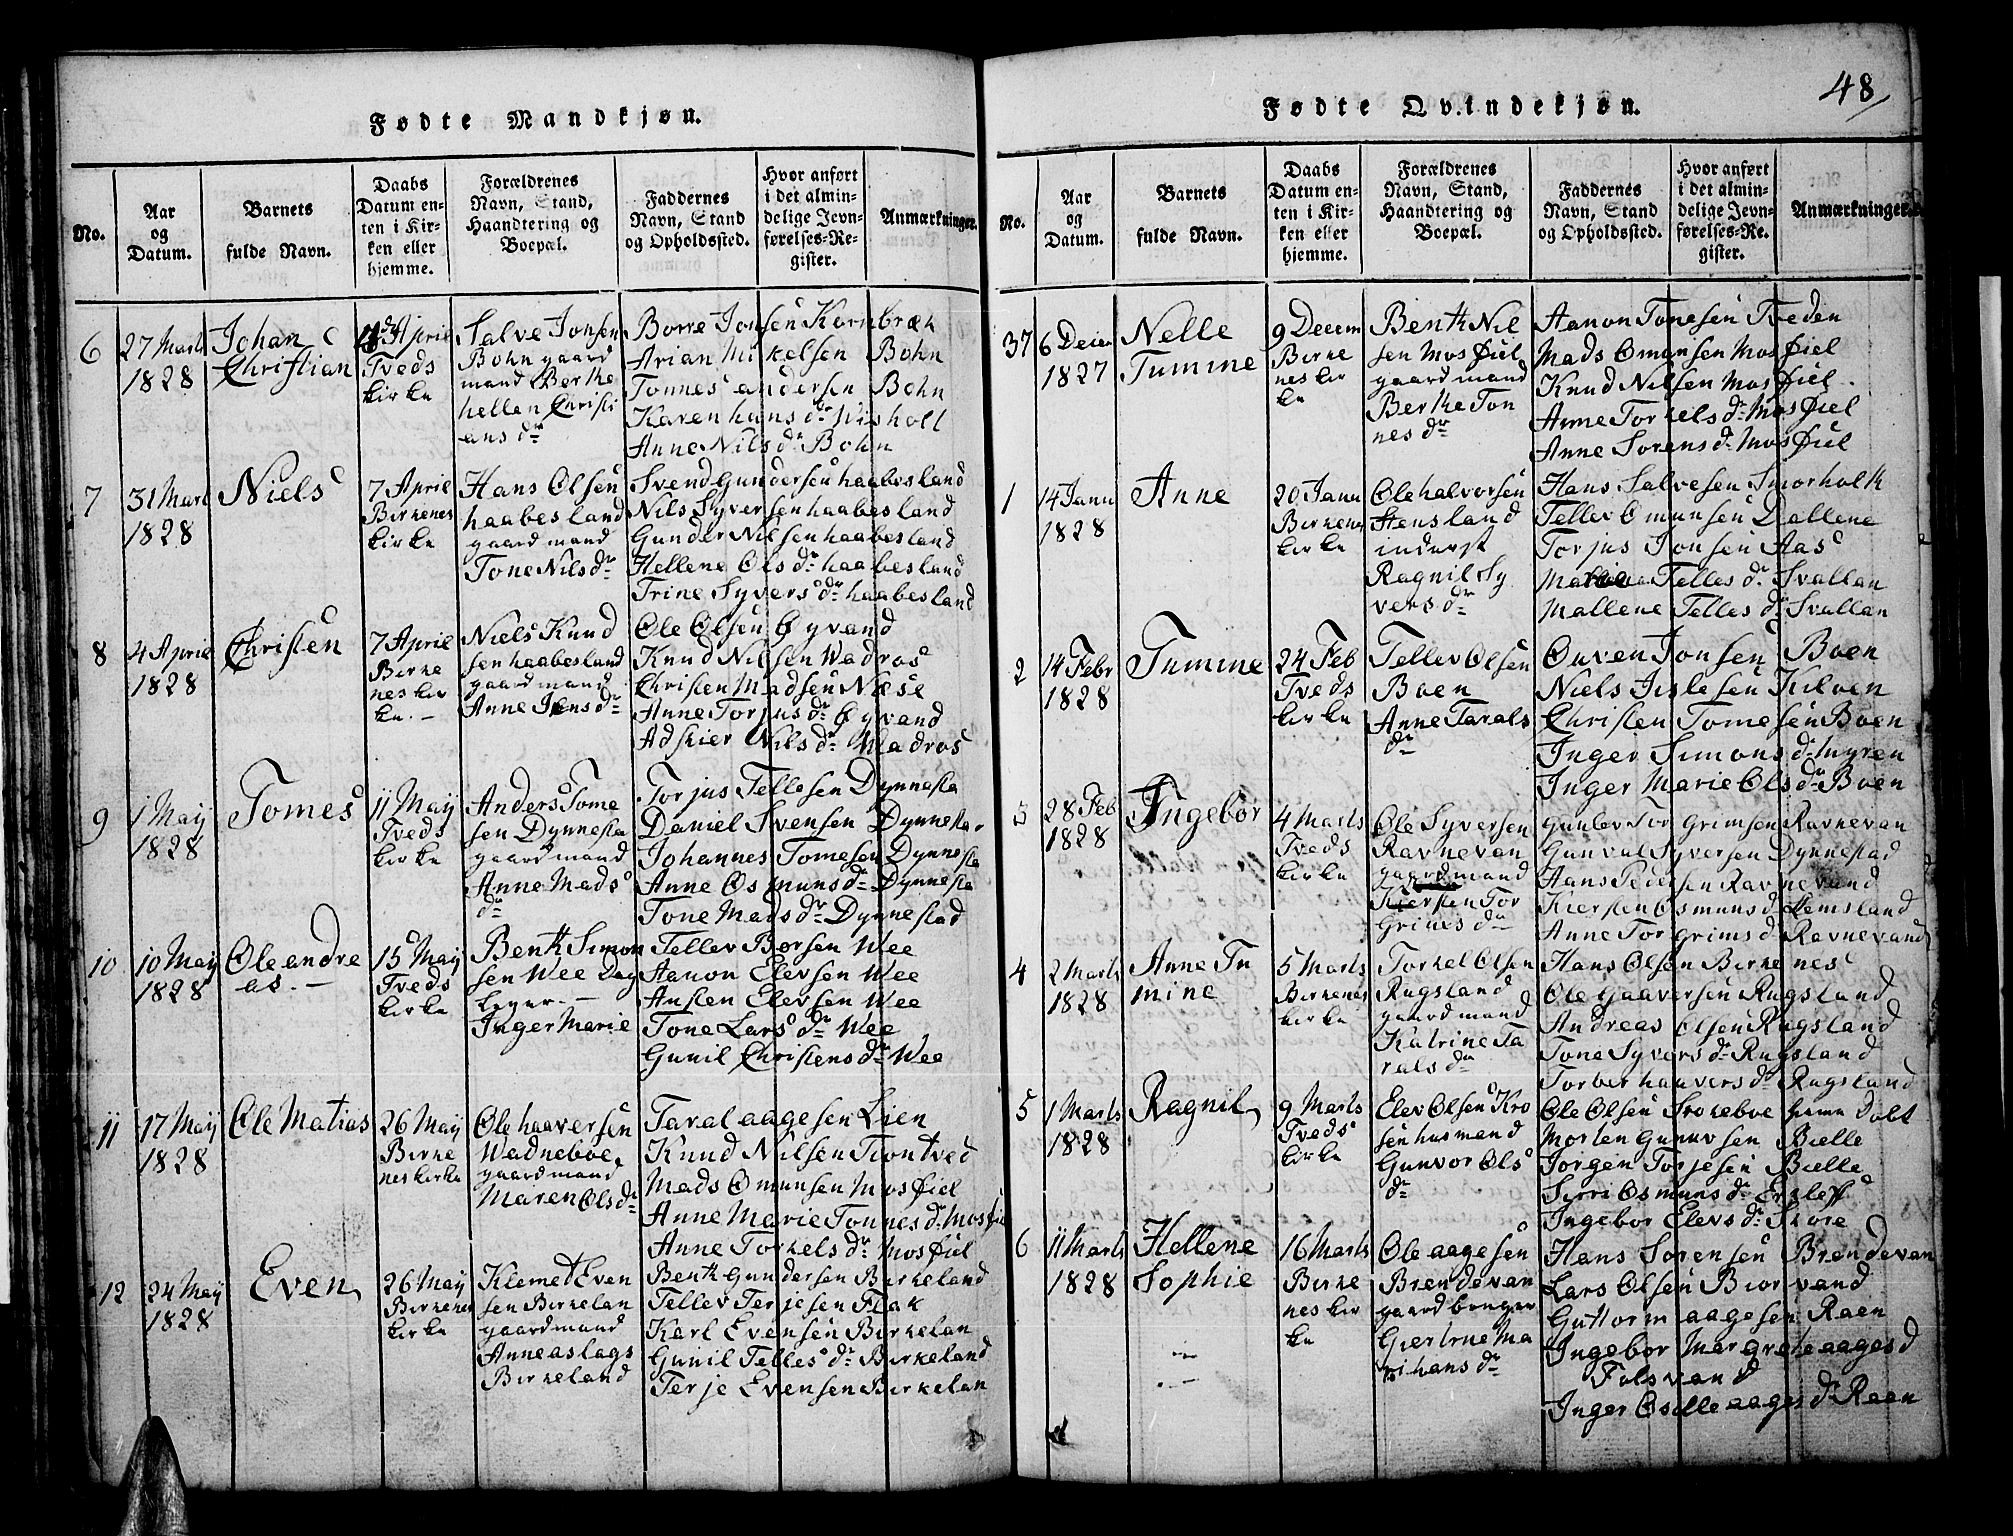 48
Fødte Mandkjøn.
No.
Aar
og
Datum.
Barnets
fulde Navn.
Daabs
Datum en-
ten i Kir-
ken eller
hjemme.
Forældrenes
Navn, Stand,
Haandtering og
Boepæl.
Faddernes
Navn, Stand
og Opholdssted.
Hvor anført
i det almin-
delige Jevn-
førelses-Re-
gister.
Anmærkninger.
6
27 Marts
1828
Johan
Christian
April
Tveds
kirke
Salve Jonsen
Bohn gaard
mand Berthe
hellen Christi
ans dr
Borre Jonsen Kornbræk
Arian Mikelsen Bohn
Tonnes andersen Bohn
Karen hans dr Wisholt
Anne Nils dr Bohn
7
31 Mart
1828
Niels
7 April
Birkenes
kirke
Hans Olsen
haabesland
gaardmand
Tone Nils dr
Svend Gundersen haabesland
Nils Syversen haabesland
Gunder Nilsen haabesland
Hellene Ols dr haabesland
Trine Syvers dr haabesland
8
4 April
1828
Christen
7 April
Birke
nes kir
ke. –
Niels Knud
sen haabesland
gaardmand
Anne Jens dr
Ole Olsen Øyvand
Knud Nilsen Wadros
Christen Madsen Næse
Anne Torjus dr Øyvand
Adskier Nils dr Wadros
9
1 Maij
1828
Tomes
11 Maij
Tveds
kirke
Anders Tome
sen Dynnesta
gaardmand
Anne Mads
dr
Torjus Tellesen Dynnesta
Daniel Svensen Dynnesta
Johannes Tomesen Dynnesta
Anne Osmuns dr Dynnesta
Tone Mads dr Dynnestad
10
10 Maij
1828
Ole andre
as. –
15 Maij
Tveds
kirke
Benth Simon
sen Wee Dag
leyer. –
Inger Marie
Tellev Borsen Wee
Aanon Elevsen Wee
Ansten Elevsen Wee
Tone Lars dr Wee
Gunil Christens dr Wee
11
17 Maij
1828
Ole Matias
26 Maij
Birke
nes kirke
Ole haaversen
Wadneboe
gaardmand
Maren Ols dr
Taral aagesen Lien
Knud Nilsen Tiontved
Mads Omunsen Mosfiel
Anne Marie Tonnes dr Mosfiel
Anne Torkels dr Mosfiel
12
24 Maij
1828
Even
26 Maij
Birkenes
kirke
Klemet Even
sen Birkelan
gaardmand
Anne aslags
Birkeland
Benth Gundersen Birkeland
Tellev Terjesen Flak
Karl Evensen Birkelan
Gunil Telles dr Birkeland
Terje Evensen Birkelan
Fødte Qvindekjøn.
No.
Aar
og
Datum.
Barnets
fulde Navn.
Daabs
Datum en-
ten i Kir-
ken eller
hjemme.
Forældrenes
Navn, Stand,
Haandtering og
Boepæl.
Faddernes
Navn, Stand
og Opholdssted.
Hvor anført
i det almin-
delige Jevn-
førelses-Re-
gister.
Anmærkninger.
37
6 Decem
1827
Nelle
Tumine
9 Decem
Birke
nes kir
ke
Benth Nil
sen Mosfiel
gaardmand
Berthe Ton
nes dr
Aanon Tonesen Tveden
Mads Omunsen Mosfiel
Knud Nilsen Mosfiel.
Anne Torkels dr Mosfiel
Anne Sorens dr Mosfiel
1
14 Janu
1828
Anne
20 Janu
Birkenes
kirke
Ole halvorsen
Stensland
inderst
Ragnil Sy
vers dr
Hans Salvesen Smorholt
Tellev Omunsen Dallene
Torjus Jonsen Aas
Telles dr Svallan
Mallene Telles dr Svallan
2
14 Febr
1828
Tumine
24 Feb
Tveds
kirke
Tellev Olsen
Boen
Anne Tarals
dr
Ouven Jonsen Boen
Niels Jislesen Kilven
Christen Tomesen Boen
Inger Simons dr Myren
Inger Marie Ols dr Boen
3
28 Feb
1828
Ingebor
4 Marts
Tveds
kirke
Ole Syversen
Ravnevan
gaardmand
Kiersten Tor
Grines dr
Gunlev Tor Grimsen Ravnevan
Gunval Syversen Dynnestad
Hans Pedersen Ravnevand
Kiersten Osmuns d Hemsland
Anne Torgrims d Ravnevand
4
2 Marts
1828
Anne Tu
mine
5 Marts
Birkenes
kirke
Torkel Olsen
Rugsland
gaardmand
Katrine Ta
rals dr
Hans Olsen Birkenes
Ole Gaaversen Rugsland
Andreas Olsen Rugsland
Tone Syvers dr Rugsland
Torber haavers dr Rugsland
5
1 Marts
1828
Ragnil
9 Marts
Tveds
kirke
Elev Olsen Kro
sen husmand
Gunvor Ols
dr
Ole Olsen Srokeboe
Morten Gunuvsen Bielle
Jorgen Torjesen Bielle
Sirri Osmuns dr Ersleff
Ingebor Elevs dr Skore
6
11 Marts
1828
Hellene
Sophie
16 Marts
Birke
nes kir
ke
Ole aagesen
Brendevan
gaardbruger
Giertrue Ma
ri hans dr
Hans Sorensen Brendevan
Lars Olsen Biorvand
Guttorm aagesen Raen
Ingebor Margrete aages d
Folsvand
Inger Osille aages d Raen